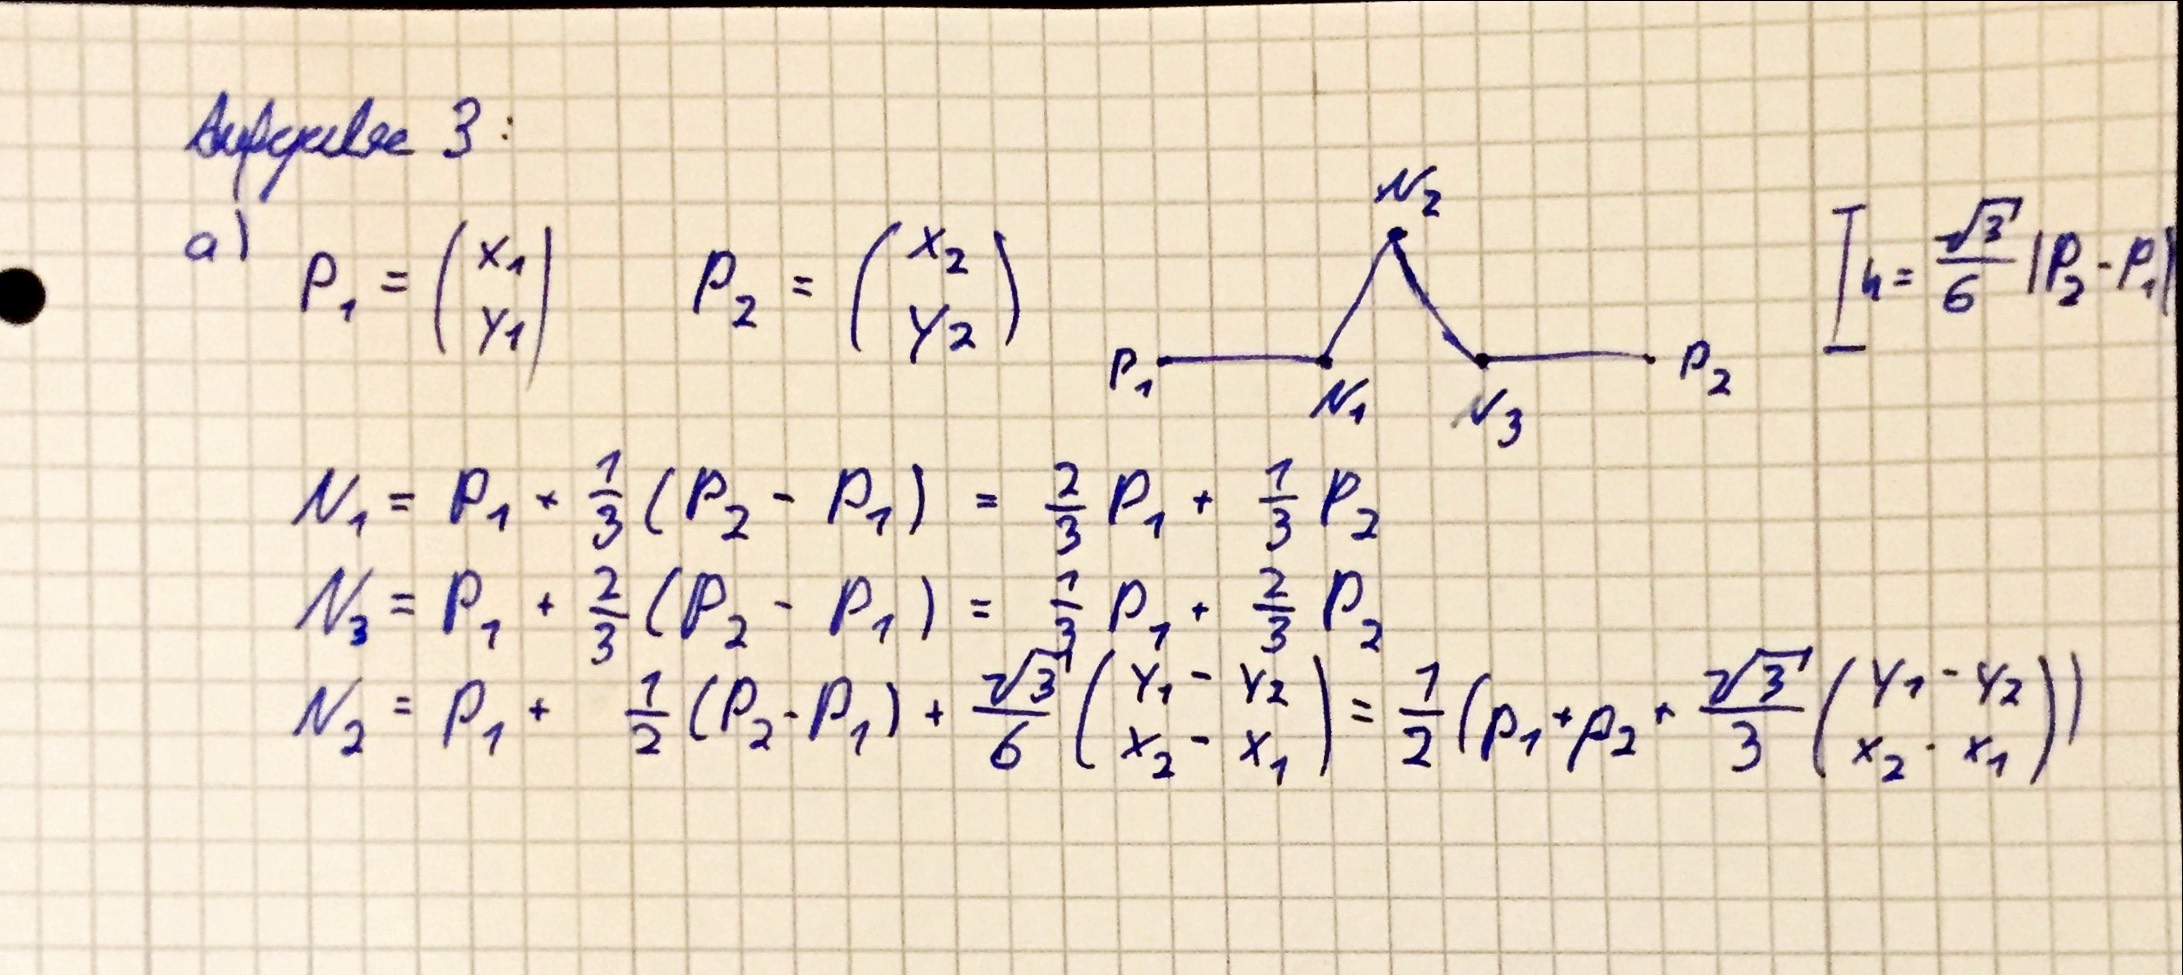 Aufgabe 3:
a) P₁ = (x₁ y₁) P₂ = (x₂ y₂)
P₁ N₁ N₂ N₃ P₂
h = √3/6 |P₂ - P₁|
N₁ = P₁ + 1/3 (P₂ - P₁) = 2/3 P₁ + 1/3 P₂
N₃ = P₁ + 2/3 (P₂ - P₁) = 1/3 P₁ + 2/3 P₂
N₂ = P₁ + 1/2 (P₂ - P₁) + √3/6 (y₁ - y₂ x₂ - x₁) = 1/2 (P₁ + P₂ + √3/3 (y₁ - y₂ x₂ - x₁))